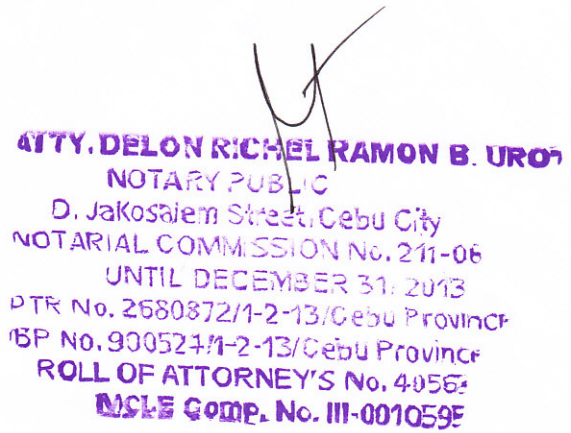 ATTY. DELON RICHEL RAMON B. UROT
NOTARY PUBLIC
D. Jakosalem Street, Cebu City
NOTARIAL COMMISSION No. 211-06
UNTIL DECEMBER 31, 2013
PTR No. 2680872/1-2-13/Cebu Province
IBP No. 900524/1-2-13/Cebu Province
ROLL OF ATTORNEY'S No.
MCLE Comp. No. III-0010595